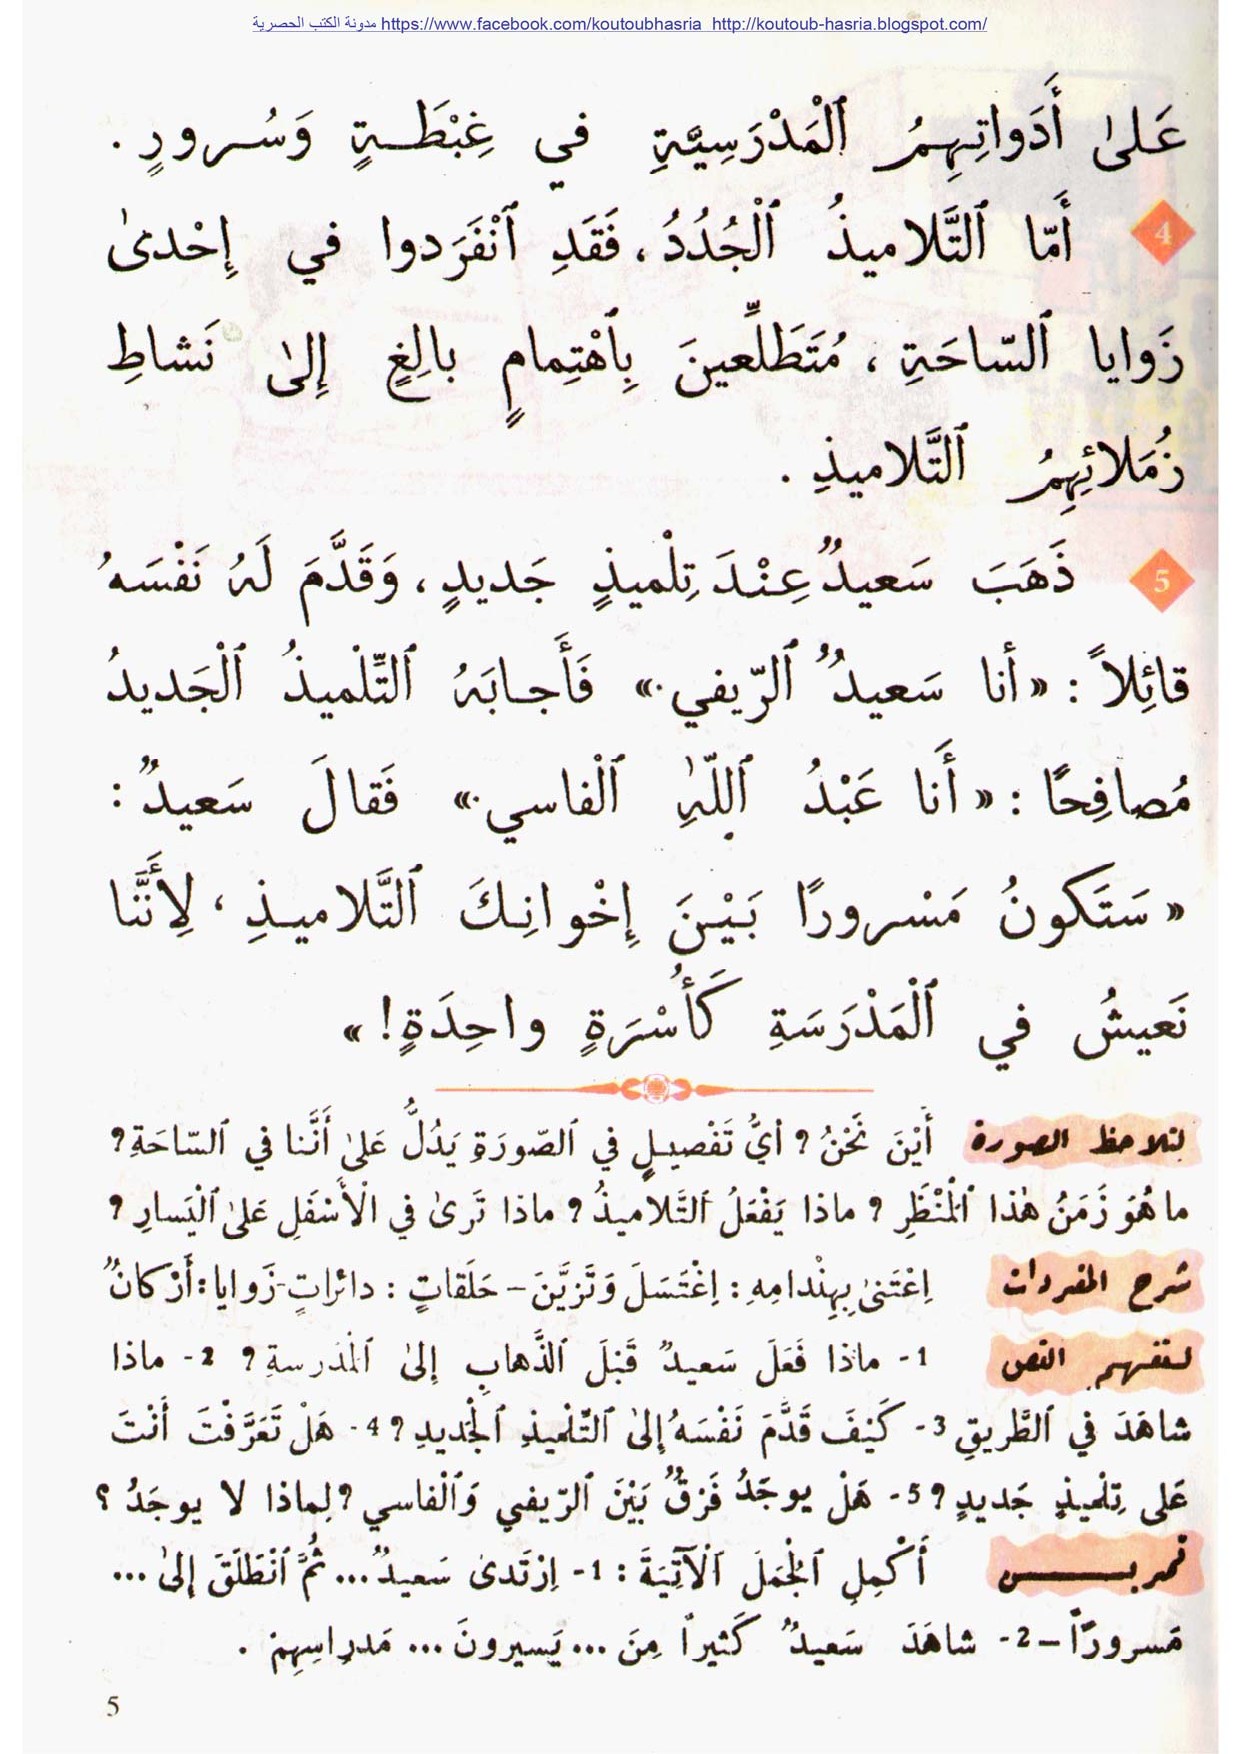 مدونة الكتب الحصرية https://www.facebook.com/koutoubhasria http://koutoub-hasria.blogspot.com/
عَلىٰ أَدَواتِهِمُ ٱلْمَدْرَسِيَّةِ في غِبْطَةٍ وَسُرورٍ .
4 أَمّا ٱلتَّلاميذُ ٱلْجُدُدُ، فَقَدِ ٱنْفَرَدوا في إِحْدىٰ
زَوايا ٱلسّاحَةِ ، مُتَطَلِّعينَ بِٱهْتِمامٍ بالِغٍ إِلىٰ نَشاطِ
زُمَلائِهِمُ ٱلتَّلاميذِ .
5 ذَهَبَ سَعيدٌ عِنْدَ تِلْميذٍ جَديدٍ، وَقَدَّمَ لَهُ نَفْسَهُ
قائِلاً : «أنا سَعيدٌ ٱلرّيفي.» فَأَجابَهُ ٱلتِّلْميذُ ٱلْجَديدُ
مُصافِحًا : «أَنا عَبْدُ ٱللّٰهِ ٱلْفاسي.» فَقالَ سَعيدٌ :
«سَتَكونُ مَسْرورًا بَيْنَ إِخْوانِكَ ٱلتَّلاميذِ ، لِأَنَّنا
نَعيشُ في ٱلْمَدْرَسَةِ كَأُسْرَةٍ واحِدَةٍ! »
لنلاحظ الصورة أَيْنَ نَحْنُ ؟ أيُّ تَفْصيلٍ في ٱلصّورَةِ يَدُلُّ عَلىٰ أَنَّنا في ٱلسّاحَةِ؟
ما هُوَ زَمَنُ هٰذا ٱلْمَنْظَرِ ؟ ماذا يَفْعَلُ ٱلتَّلاميذُ ؟ ماذا تَرىٰ في ٱلْأَسْفَلِ عَلىٰ ٱلْيَسارِ ؟
شرح المفردات اِعْتَنىٰ بِهِنْدامِهِ : اِغْتَسَلَ وَتَزَيَّنَ – حَلَقاتٍ : دائِراتٍ - زَوايا : أَرْكانٌ
لنتفهم النص 1- ماذا فَعَلَ سَعيدٌ قَبْلَ ٱلذَّهابِ إِلىٰ ٱلْمَدْرسةِ ؟ 2- ماذا
شاهَدَ في ٱلطَّريقِ 3- كَيْفَ قَدَّمَ نَفْسَهُ إِلىٰ ٱلتِّلْميذِ ٱلْجَديدِ ؟ 4- هَلْ تَعَرَّفْتَ أَنْتَ
عَلى تِلْميذٍ جَديدٍ ؟ 5- هَلْ يوجَدُ فَرْقٌ بَيْنَ ٱلرّيفي وَٱلْفاسي ؟ لِماذا لا يوجَدُ ؟
تمريــــن أَكْمِلِ ٱلْجُمَلَ ٱلْآتِيَةَ : 1- اِرْتَدىٰ سَعيدٌ ... ثُمَّ ٱنْطَلَقَ إِلىٰ ...
مَسرورًا – 2- شاهَدَ سَعيدٌ كَثيراً مِنَ ... يَسيرونَ ... مَدارِسِهِمْ .
5